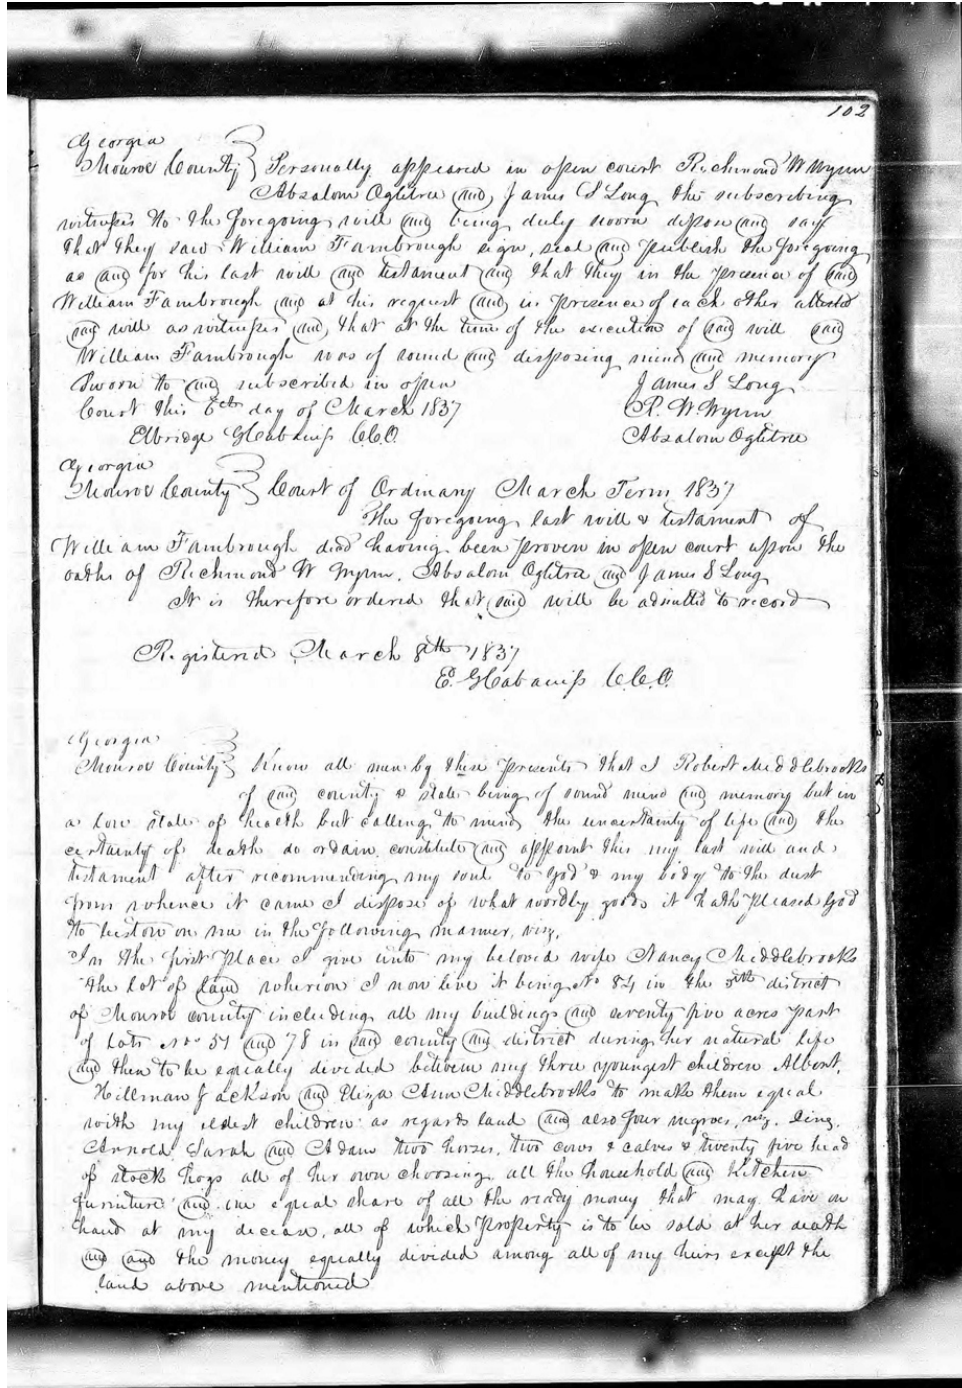 102
Georgia
Monroe County } Personally appeared in open court Richmond W Wynn
Absalom Ogletree and James S Long the subscribing
witnefses to the foregoing will and being duly sworn depose and say
that they saw William Fambrough sign, seal and publish the foregoing
as and for his last will and testament and that they in the presence of said
William Fambrough and at his request and in presence of each other attested
said will as witnefses and that at the time of the execution of said will said
William Fambrough was of sound and disposing mind and memory
Sworn to and subscribed in open James S Long
Court this day of March 1837 R. W. Wynn
Elbridge G Cabanifs C.C.O. Absalom Ogletree
Georgia
Monroe County } Court of Ordinary March Term 1837
The foregoing last will & testament of
William Fambrough decd having been proven in open court upon the
oaths of Richmond W Wynn, Absalom Ogletree and James S Long
It is therefore ordered that said will be admitted to record
Registered March 8th 1837
E. G Cabanifs C.C.O.
Georgia
Monroe County } Know all men by these presents that I Robert Middlebrooks
of said county & state being of sound mind and memory but in
a low state of health but calling to mind the uncertainty of life and the
certainty of death do ordain constitute and appoint this my last will and
testament after recommending my soul to God & my body to the dust
from whence it came I dispose of what wordly goods it hath pleased God
to bestow on me in the following manner, viz,
In the first place I give unto my beloved wife Nancy Middlebrooks
the lot of land whereon I now live it being No 84 in the 5th district
of Monroe county including all my buildings and seventy five acres part
of Lots Nos 51 and 78 in said county and district during her natural life
and then to be equally divided between my three youngest children Albert,
Hillman Jackson and Eliza Ann Middlebrooks to make them equal
with my eldest children as regards land and also four negroes, viz.
Arnold, Sarah and Adam two horses, two cows & calves & twenty five head
of stock hogs all of her own choosing, all the household and kitchen
furniture and an equal share of all the ready money that may have on
hand at my decease, all of which property is to be sold at her death
and and the money equally divided among all of my heirs except the
land above mentioned